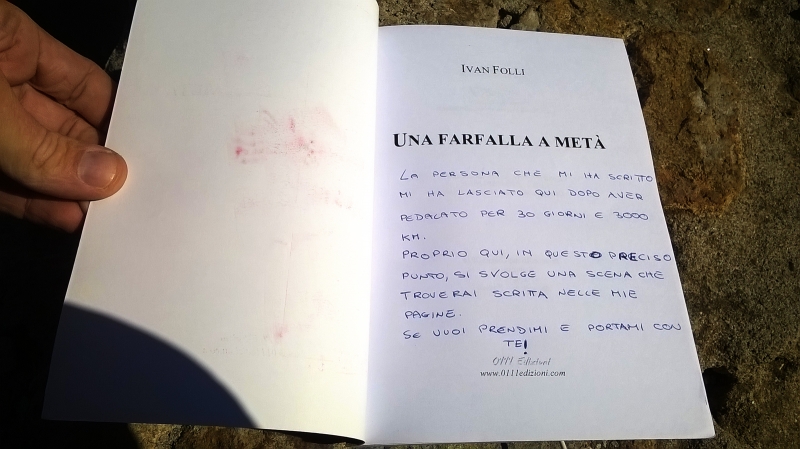 IVAN FOLLI
UNA FARFALLA A METÀ
LA PERSONA CHE MI HA SCRITTO
MI HA LASCIATO QUI DOPO AVER
PEDALATO PER 30 GIORNI E 3000
KM.
PROPRIO QUI, IN QUESTO PRECISO
PUNTO, SI SVOLGE UNA SCENA CHE
TROVERAI SCRITTA NELLE MIE
PAGINE.
SE VUOI PRENDIMI E PORTAMI CON
TE!
0111 Edizioni
www.0111edizioni.com